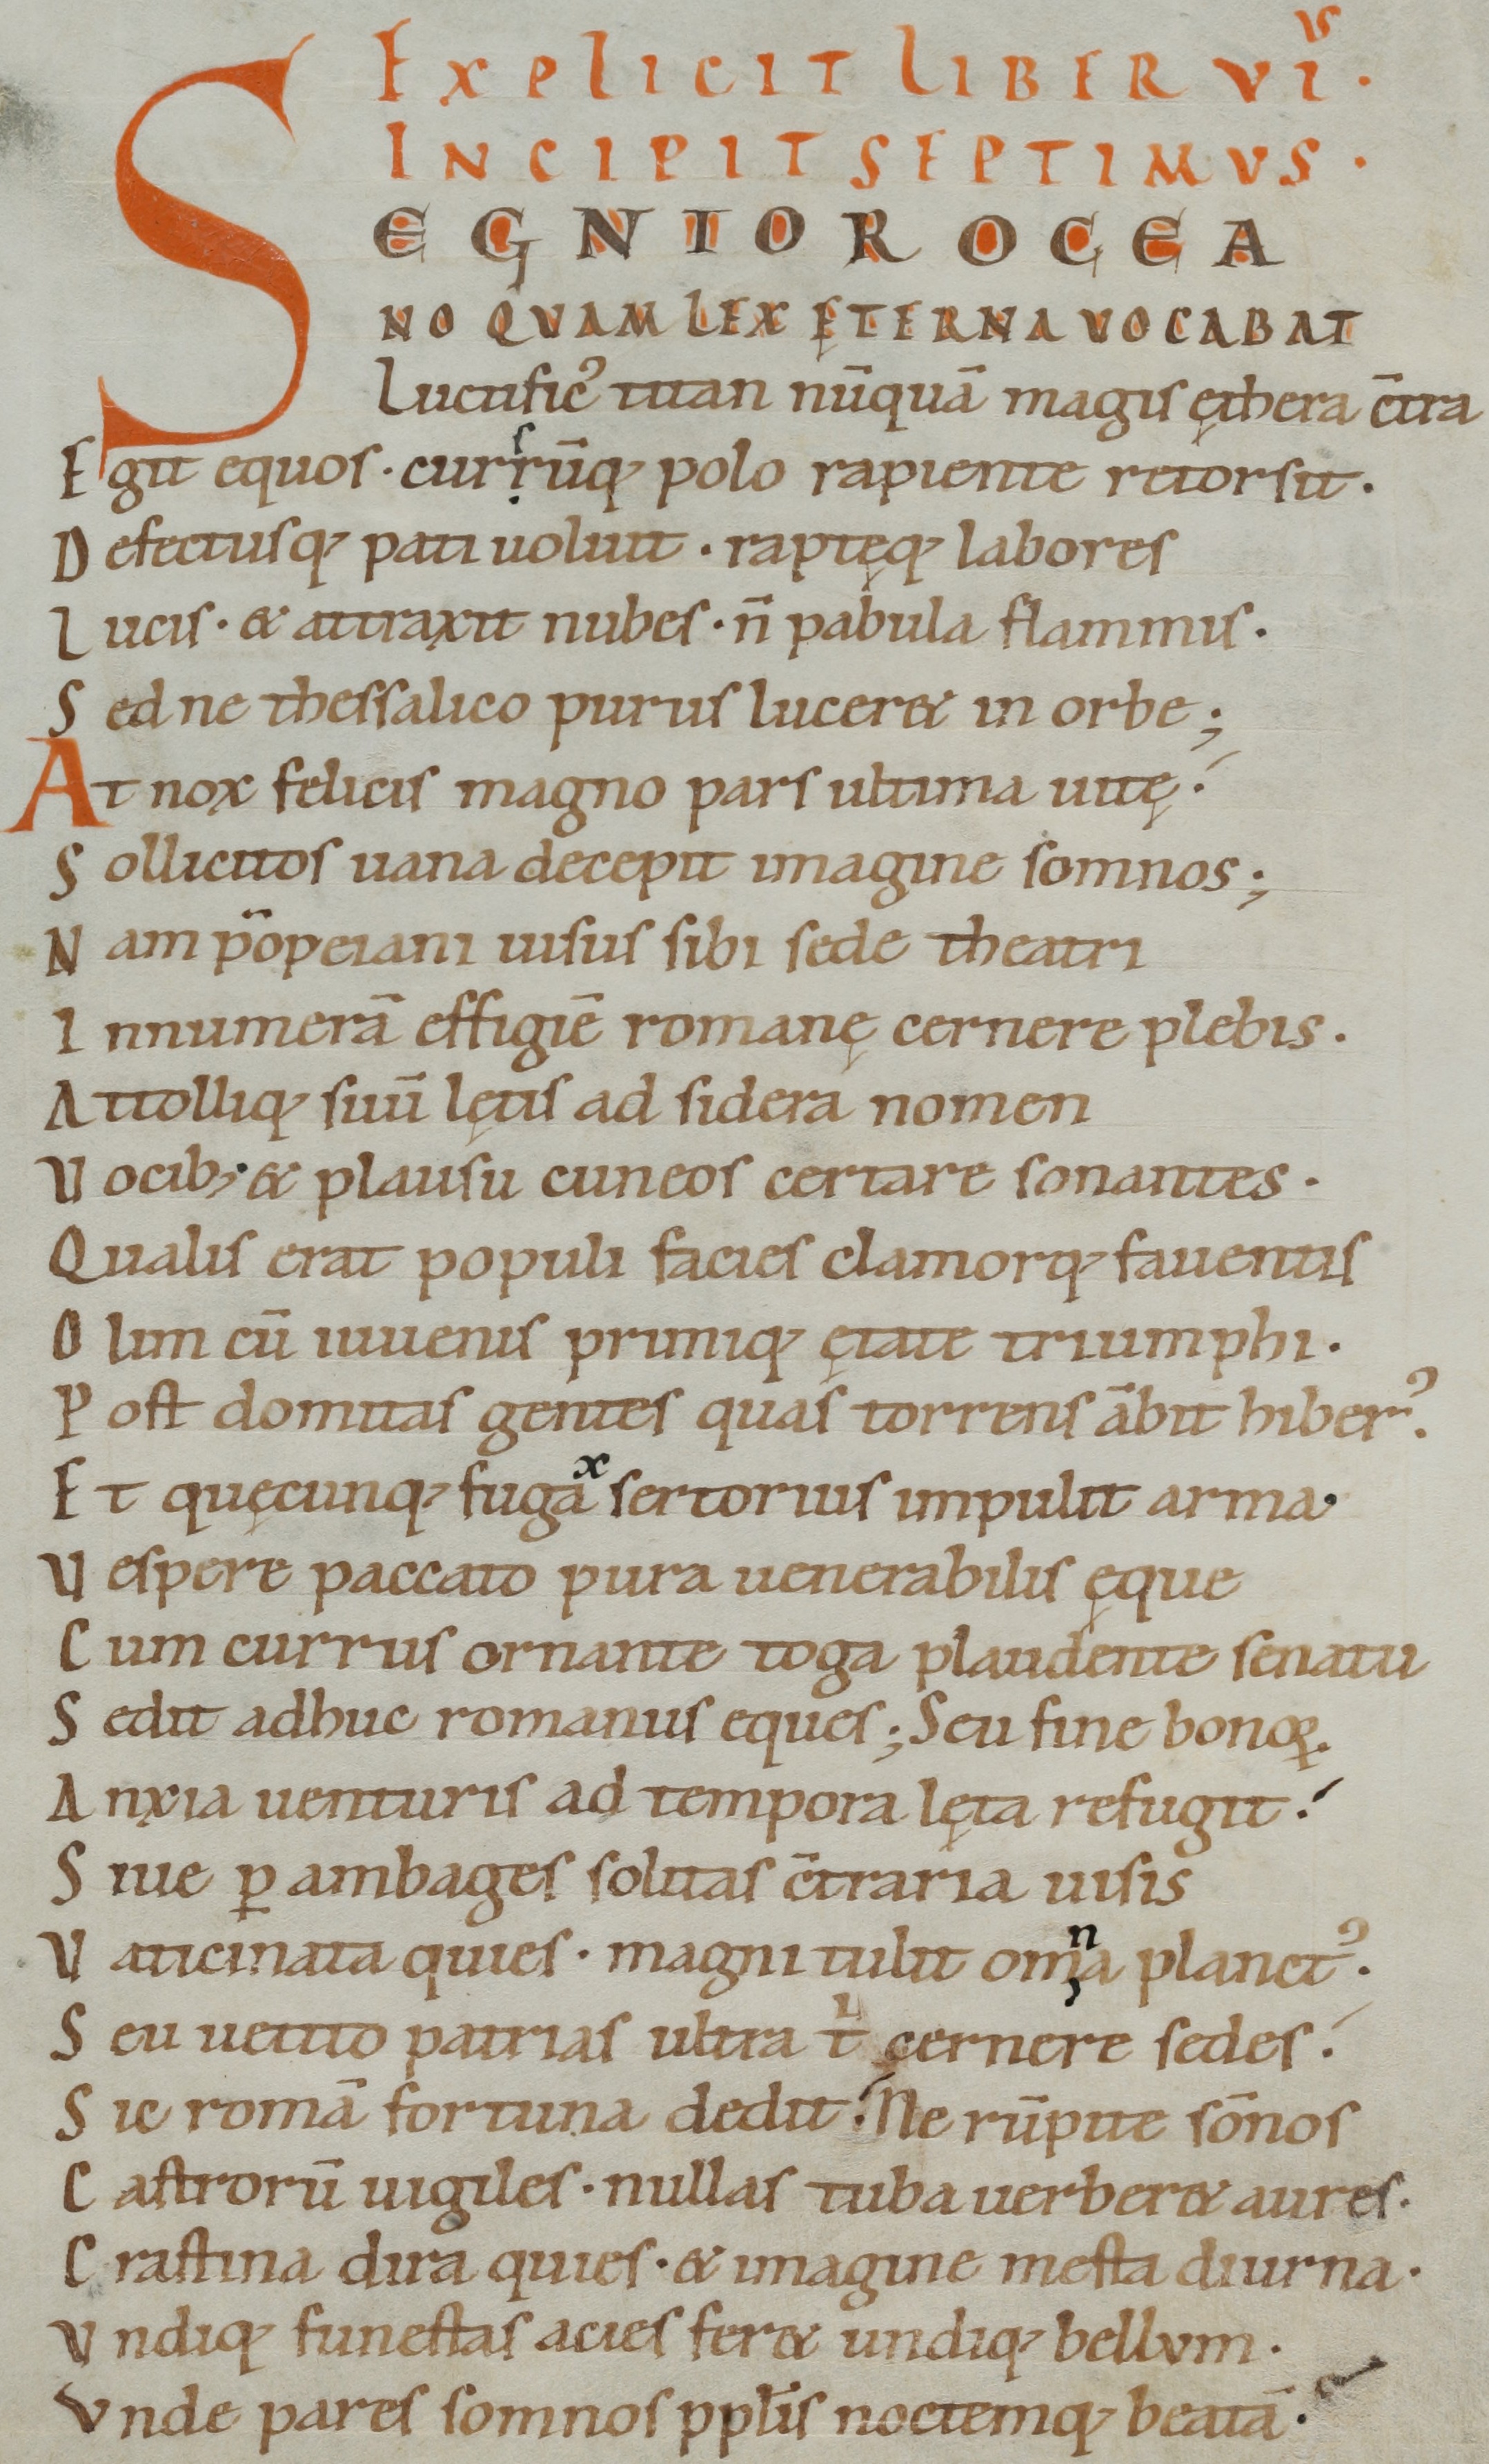 EXPLICIT LIBER VI᷒ᵛˢ.
INCIPIT SEPTIMVS.
SEGNIOR OCEA
NO QVAM LEX ĘTERNA VOCABAT
Luctific᾽ titan nūquā magis ęthera c̄tra
Egit equos. currūq; polo rapiente retorsit.
Defectusq; pati uoluit. raptęq; labores
Lucis. & attraxit nubes. n̄ pabula flammis.
Sed ne thessalico purus lucer& in orbe;
At nox felicis magno pars ultima uitę.
Sollicitos uana decepit imagine somnos;
Nam p̄opeiani uisus sibi sede theatri
Innumerā effigiē romanę cernere plebis.
Attolliq; suū lętis ad sidera nomen
Vocib; & plausu cuneos certare sonantes.
Qualis erat populi facies clamorq; fauentis
Olim cū iuuenis primiq; ętate triumphi.
Post domitas gentes quas torrens ābit hiber᾽.
Et quęcunq; fugāˣ sertorius impulit arma.
Vespere paccato pura uenerabilis ęque
Cum currus ornante toga plaudente senatu
Sedit adhuc romanus eques; Seu fine bonoꝝ.
Anxia uenturis ad tempora lęta refugit.
Siue ꝑ ambages solitas c̄traria uisis
Vaticinata quies. magni tulit omⁿa planct᾽.
Seu uetito patrias ultra t̄ cernere sedes.
Sic romā fortuna dedit. Ne rūpite sōnos
Castrorū uigiles. nullas tuba uerber& aures.
Crastina dira quies. & imagine mesta diurna.
Vndiq; funestas acies fer& undiq; bellum.
Vnde pares somnos ppl̄is noctemq; beatā.